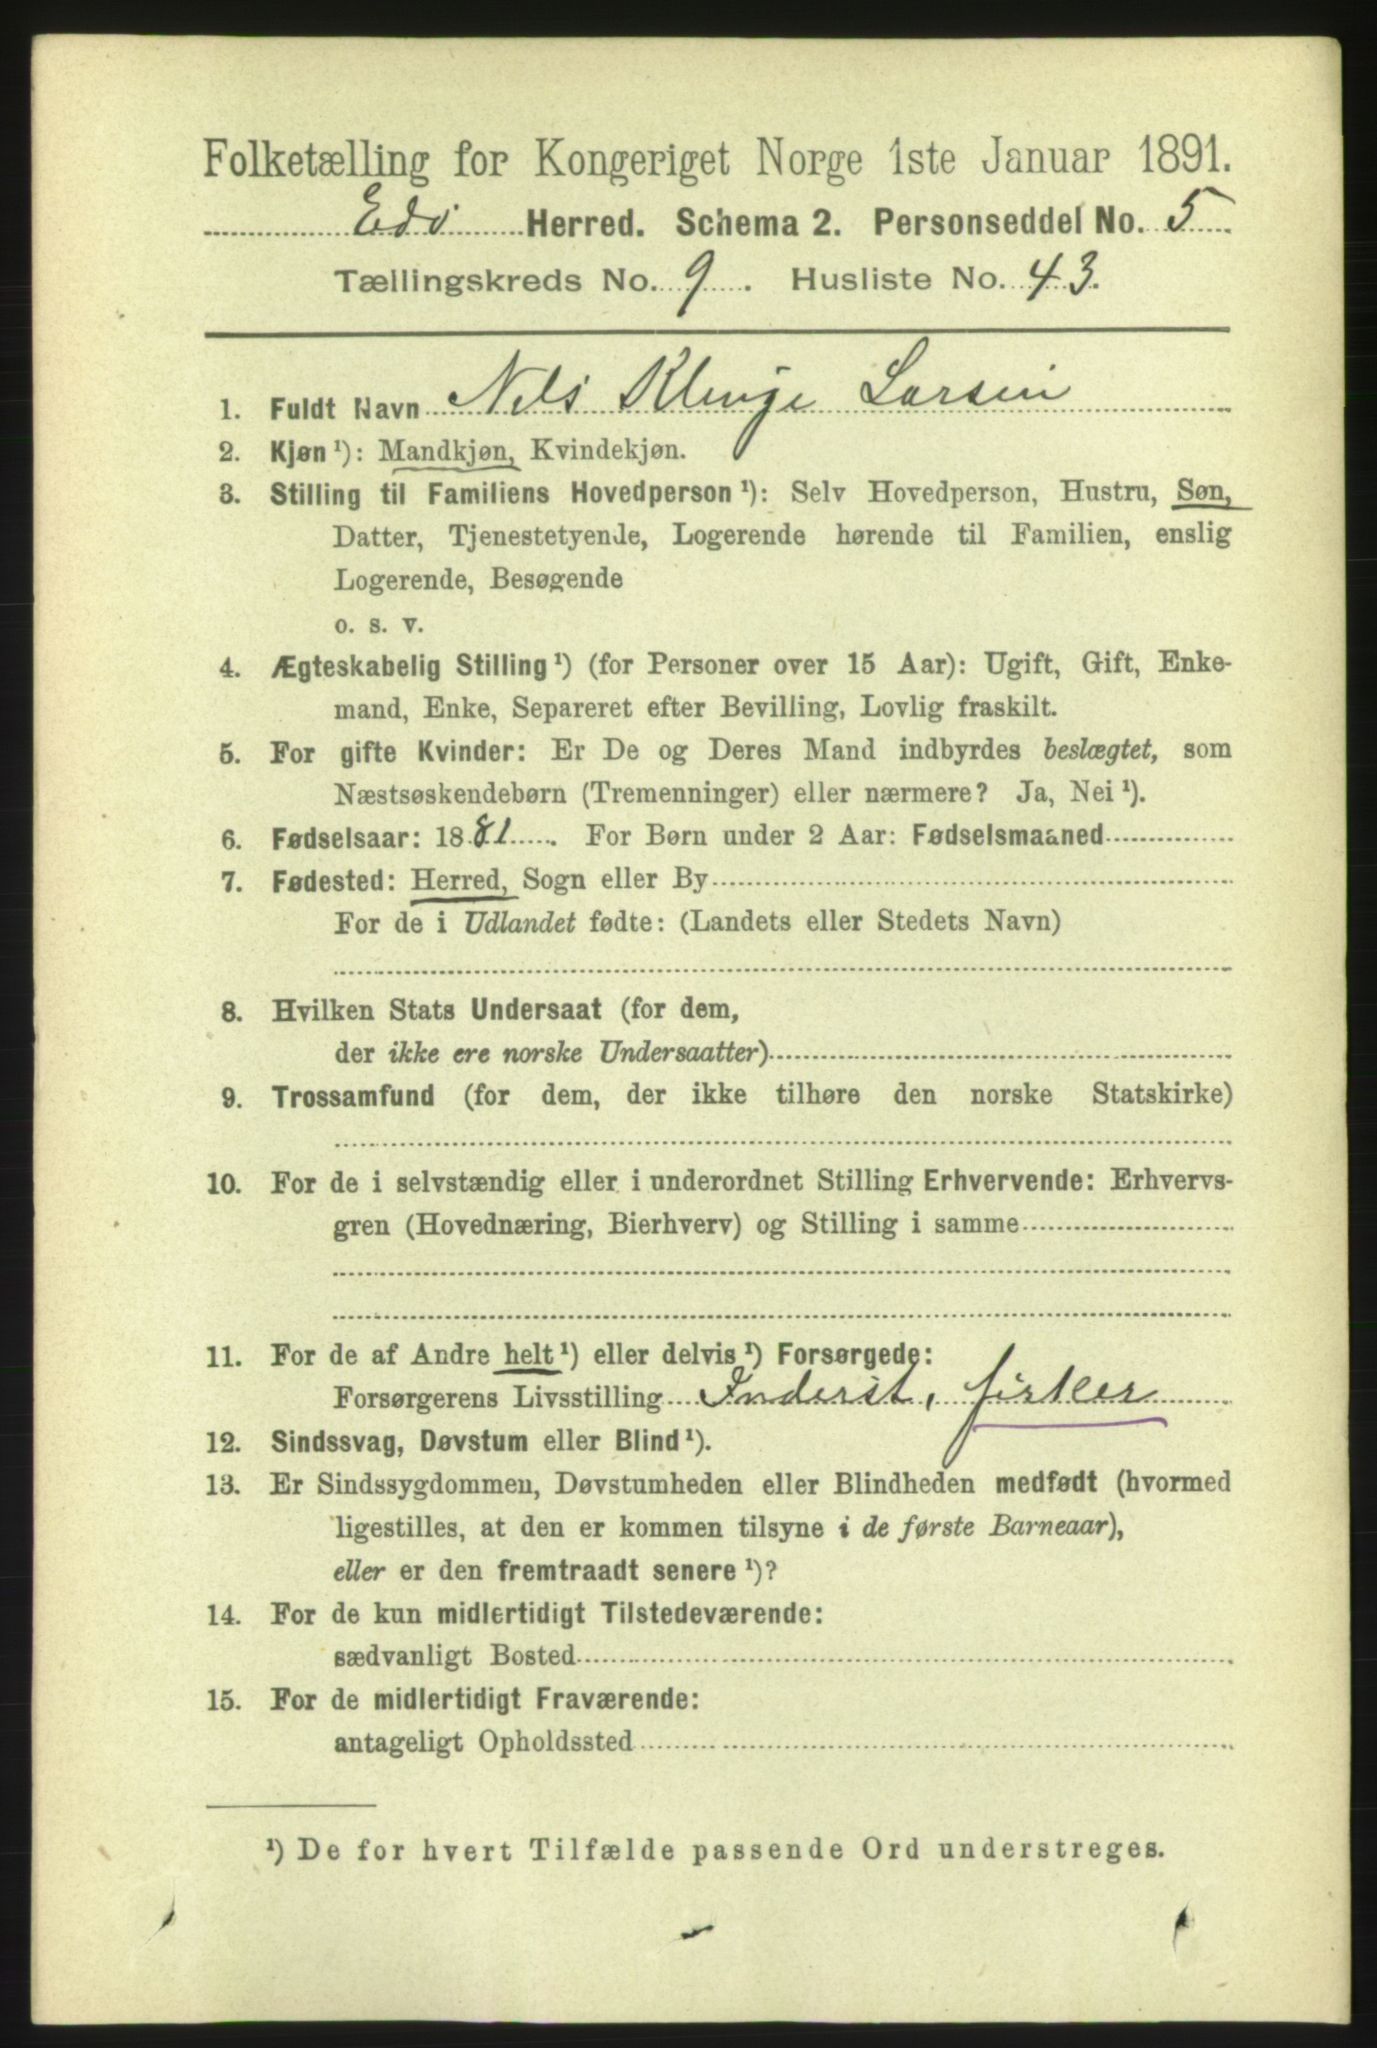 Folketælling for Kongeriget Norge 1ste Januar 1891.
Edø Herred. Schema 2. Personseddel No. 5
Tællingskreds No. 9. Husliste No. 43.
1. Fuldt Navn Nels Klinge Larsen
2. Kjøn ¹): Mandkjøn, Kvindekjøn.
3. Stilling til Familiens Hovedperson ¹): Selv Hovedperson, Hustru, Søn,
Datter, Tjenestetyende, Logerende hørende til Familien, enslig
Logerende, Besøgende
o. s. v.
4. Ægteskabelig Stilling ¹) (for Personer over 15 Aar): Ugift, Gift, Enke-
mand, Enke, Separeret efter Bevilling, Lovlig fraskilt.
5. For gifte Kvinder: Er De og Deres Mand indbyrdes beslægtet, som
Næstsøskendebørn (Tremenninger) eller nærmere? Ja, Nei ¹).
6. Fødselsaar: 1881. For Børn under 2 Aar: Fødselsmaaned
7. Fødested: Herred, Sogn eller By
For de i Udlandet fødte: (Landets eller Stedets Navn)
8. Hvilken Stats Undersaat (for dem,
der ikke ere norske Undersaatter)
9. Trossamfund (for dem, der ikke tilhøre den norske Statskirke)
10. For de i selvstændig eller i underordnet Stilling Erhvervende: Erhvervs-
gren (Hovednæring, Bierhverv) og Stilling i samme
11. For de af Andre helt ¹) eller delvis ¹) Forsørgede:
Forsørgerens Livsstilling Inderst, fisker
12. Sindssvag, Døvstum eller Blind ¹).
13. Er Sindssygdommen, Døvstumheden eller Blindheden medfødt (hvormed
ligestilles, at den er kommen tilsyne i de første Barneaar),
eller er den fremtraadt senere ¹)?
14. For de kun midlertidigt Tilstedeværende:
sædvanligt Bosted
15. For de midlertidigt Fraværende:
antageligt Opholdssted
¹) De for hvert Tilfælde passende Ord understreges.